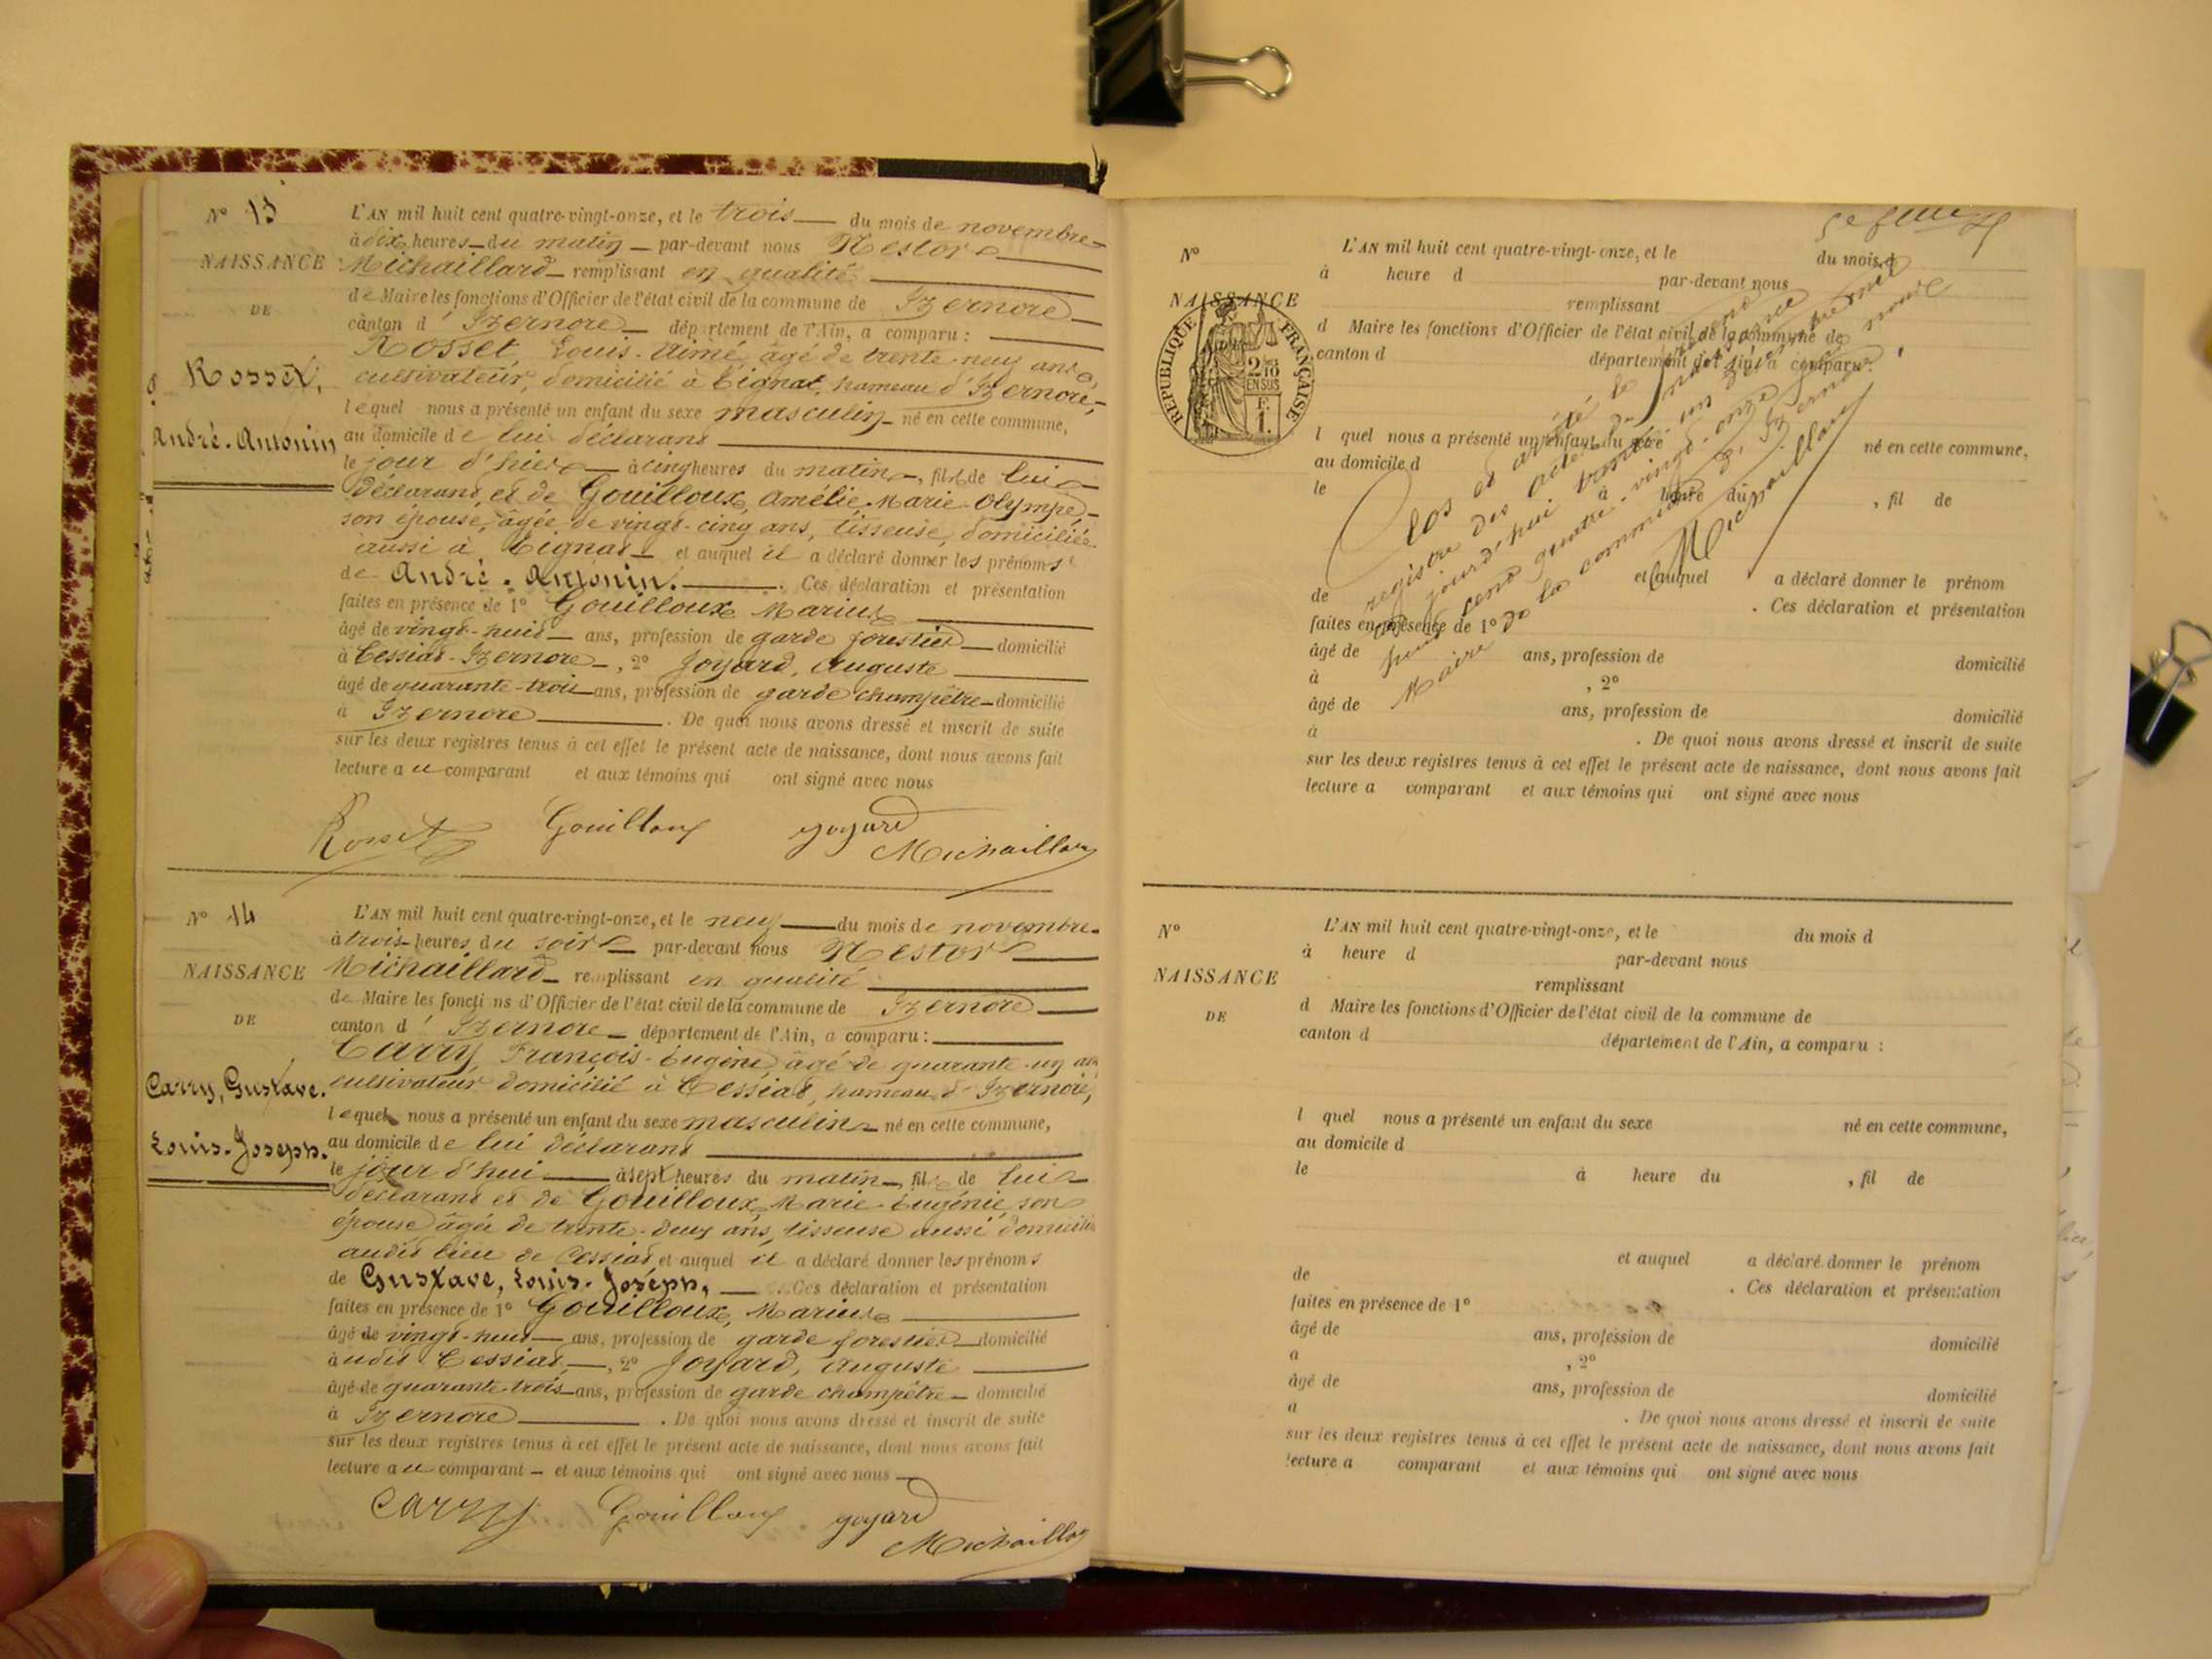 N° 13
NAISSANCE
DE
Rosset,
André-Antonin
L'AN mil huit cent quatre-vingt-onze, et le trois du mois de novembre
à dix heures du matin par-devant nous Nestor
Michaillard remplissant en qualité
de Maire les fonctions d'Officier de l'état civil de la commune de Izernore
canton d'Izernore département de l'Ain, a comparu :
Rosset, Louis-Aimé, âgé de trente-neuf ans,
cultivateur, domicilié à Tignat, hameau d'Izernore,
lequel nous a présenté un enfant du sexe masculin né en cette commune,
au domicile de lui déclarant
le jour d'hier à cinq heures du matin, fils de lui
déclarant et de Gouilloux, Amélie-Marie-Olympe
son épouse, âgée de vingt-cinq ans, tisseuse, domiciliée
aussi à Tignat et auquel il a déclaré donner les prénoms
de André-Antonin. Ces déclaration et présentation
faites en présence de 1° Gouilloux, Marius
âgé de vingt-huit ans, profession de garde forestier domicilié
à Cessiat-Izernore, 2° Joyard, Auguste
âgé de quarante-trois ans, profession de garde champêtre domicilié
à Izernore. De quoi nous avons dressé et inscrit de suite
sur les deux registres tenus à cet effet le présent acte de naissance, dont nous avons fait
lecture au comparant et aux témoins qui ont signé avec nous
Rosset Gouilloux Joyard
Michaillard
N° 14
NAISSANCE
DE
Carry, Gustave.
Louis-Joseph.
L'AN mil huit cent quatre-vingt-onze, et le neuf du mois de novembre
à trois heures du soir par-devant nous Nestor
Michaillard remplissant en qualité
de Maire les fonctions d'Officier de l'état civil de la commune de Izernore
canton d'Izernore département de l'Ain, a comparu :
Carry, François-Eugène, âgé de quarante-un ans
cultivateur domicilié à Cessiat, hameau d'Izernore,
lequel nous a présenté un enfant du sexe masculin né en cette commune,
au domicile de lui déclarant
le jour d'hui à sept heures du matin, fils de lui
déclarant et de Gouilloux, Marie-Eugénie, son
épouse âgée de trente-deux ans, tisseuse aussi domiciliée
audit lieu de Cessiat, et auquel il a déclaré donner les prénoms
de Gustave, Louis-Joseph, Ces déclaration et présentation
faites en présence de 1° Gouilloux, Marius
âgé de vingt-huit ans, profession de garde forestier domicilié
audit Cessiat, 2° Joyard, Auguste
âgé de quarante-trois ans, profession de garde champêtre domicilié
à Izernore. De quoi nous avons dressé et inscrit de suite
sur les deux registres tenus à cet effet le présent acte de naissance, dont nous avons fait
lecture au comparant et aux témoins qui ont signé avec nous
Carry Gouilloux Joyard
Michaillard
N°
NAISSANCE
RÉPUBLIQUE FRANÇAISE
2/10 EN SUS
F. 1.
L'AN mil huit cent quatre-vingt-onze, et le du mois d
à heure d par-devant nous
remplissant
d Maire les fonctions d'Officier de l'état civil de la commune de
canton d département de l'Ain, a comparu :
l quel nous a présenté un enfant du sexe né en cette commune,
au domicile d
le à heure du , fil de
et auquel a déclaré donner le prénom
de . Ces déclaration et présentation
faites en présence de 1°
âgé de ans, profession de domicilié
à , 2°
âgé de ans, profession de domicilié
à . De quoi nous avons dressé et inscrit de suite
sur les deux registres tenus à cet effet le présent acte de naissance, dont nous avons fait
lecture a comparant et aux témoins qui ont signé avec nous
Clos et arrêté le présent
registre des actes de naissance
jourd'hui trente-un
cent quatre-vingt-onze par nous
Maire de la commune d'Izernore.
Michaillard
N°
NAISSANCE
DE
L'AN mil huit cent quatre-vingt-onze, et le du mois d
à heure d par-devant nous
remplissant
d Maire les fonctions d'Officier de l'état civil de la commune de
canton d département de l'Ain, a comparu :
l quel nous a présenté un enfant du sexe né en cette commune,
au domicile d
le à heure du , fil de
et auquel a déclaré donner le prénom
de . Ces déclaration et présentation
faites en présence de 1°
âgé de ans, profession de domicilié
a , 2°
âgé de ans, profession de domicilié
a . De quoi nous avons dressé et inscrit de suite
sur les deux registres tenus à cet effet le présent acte de naissance, dont nous avons fait
lecture a comparant et aux témoins qui ont signé avec nous